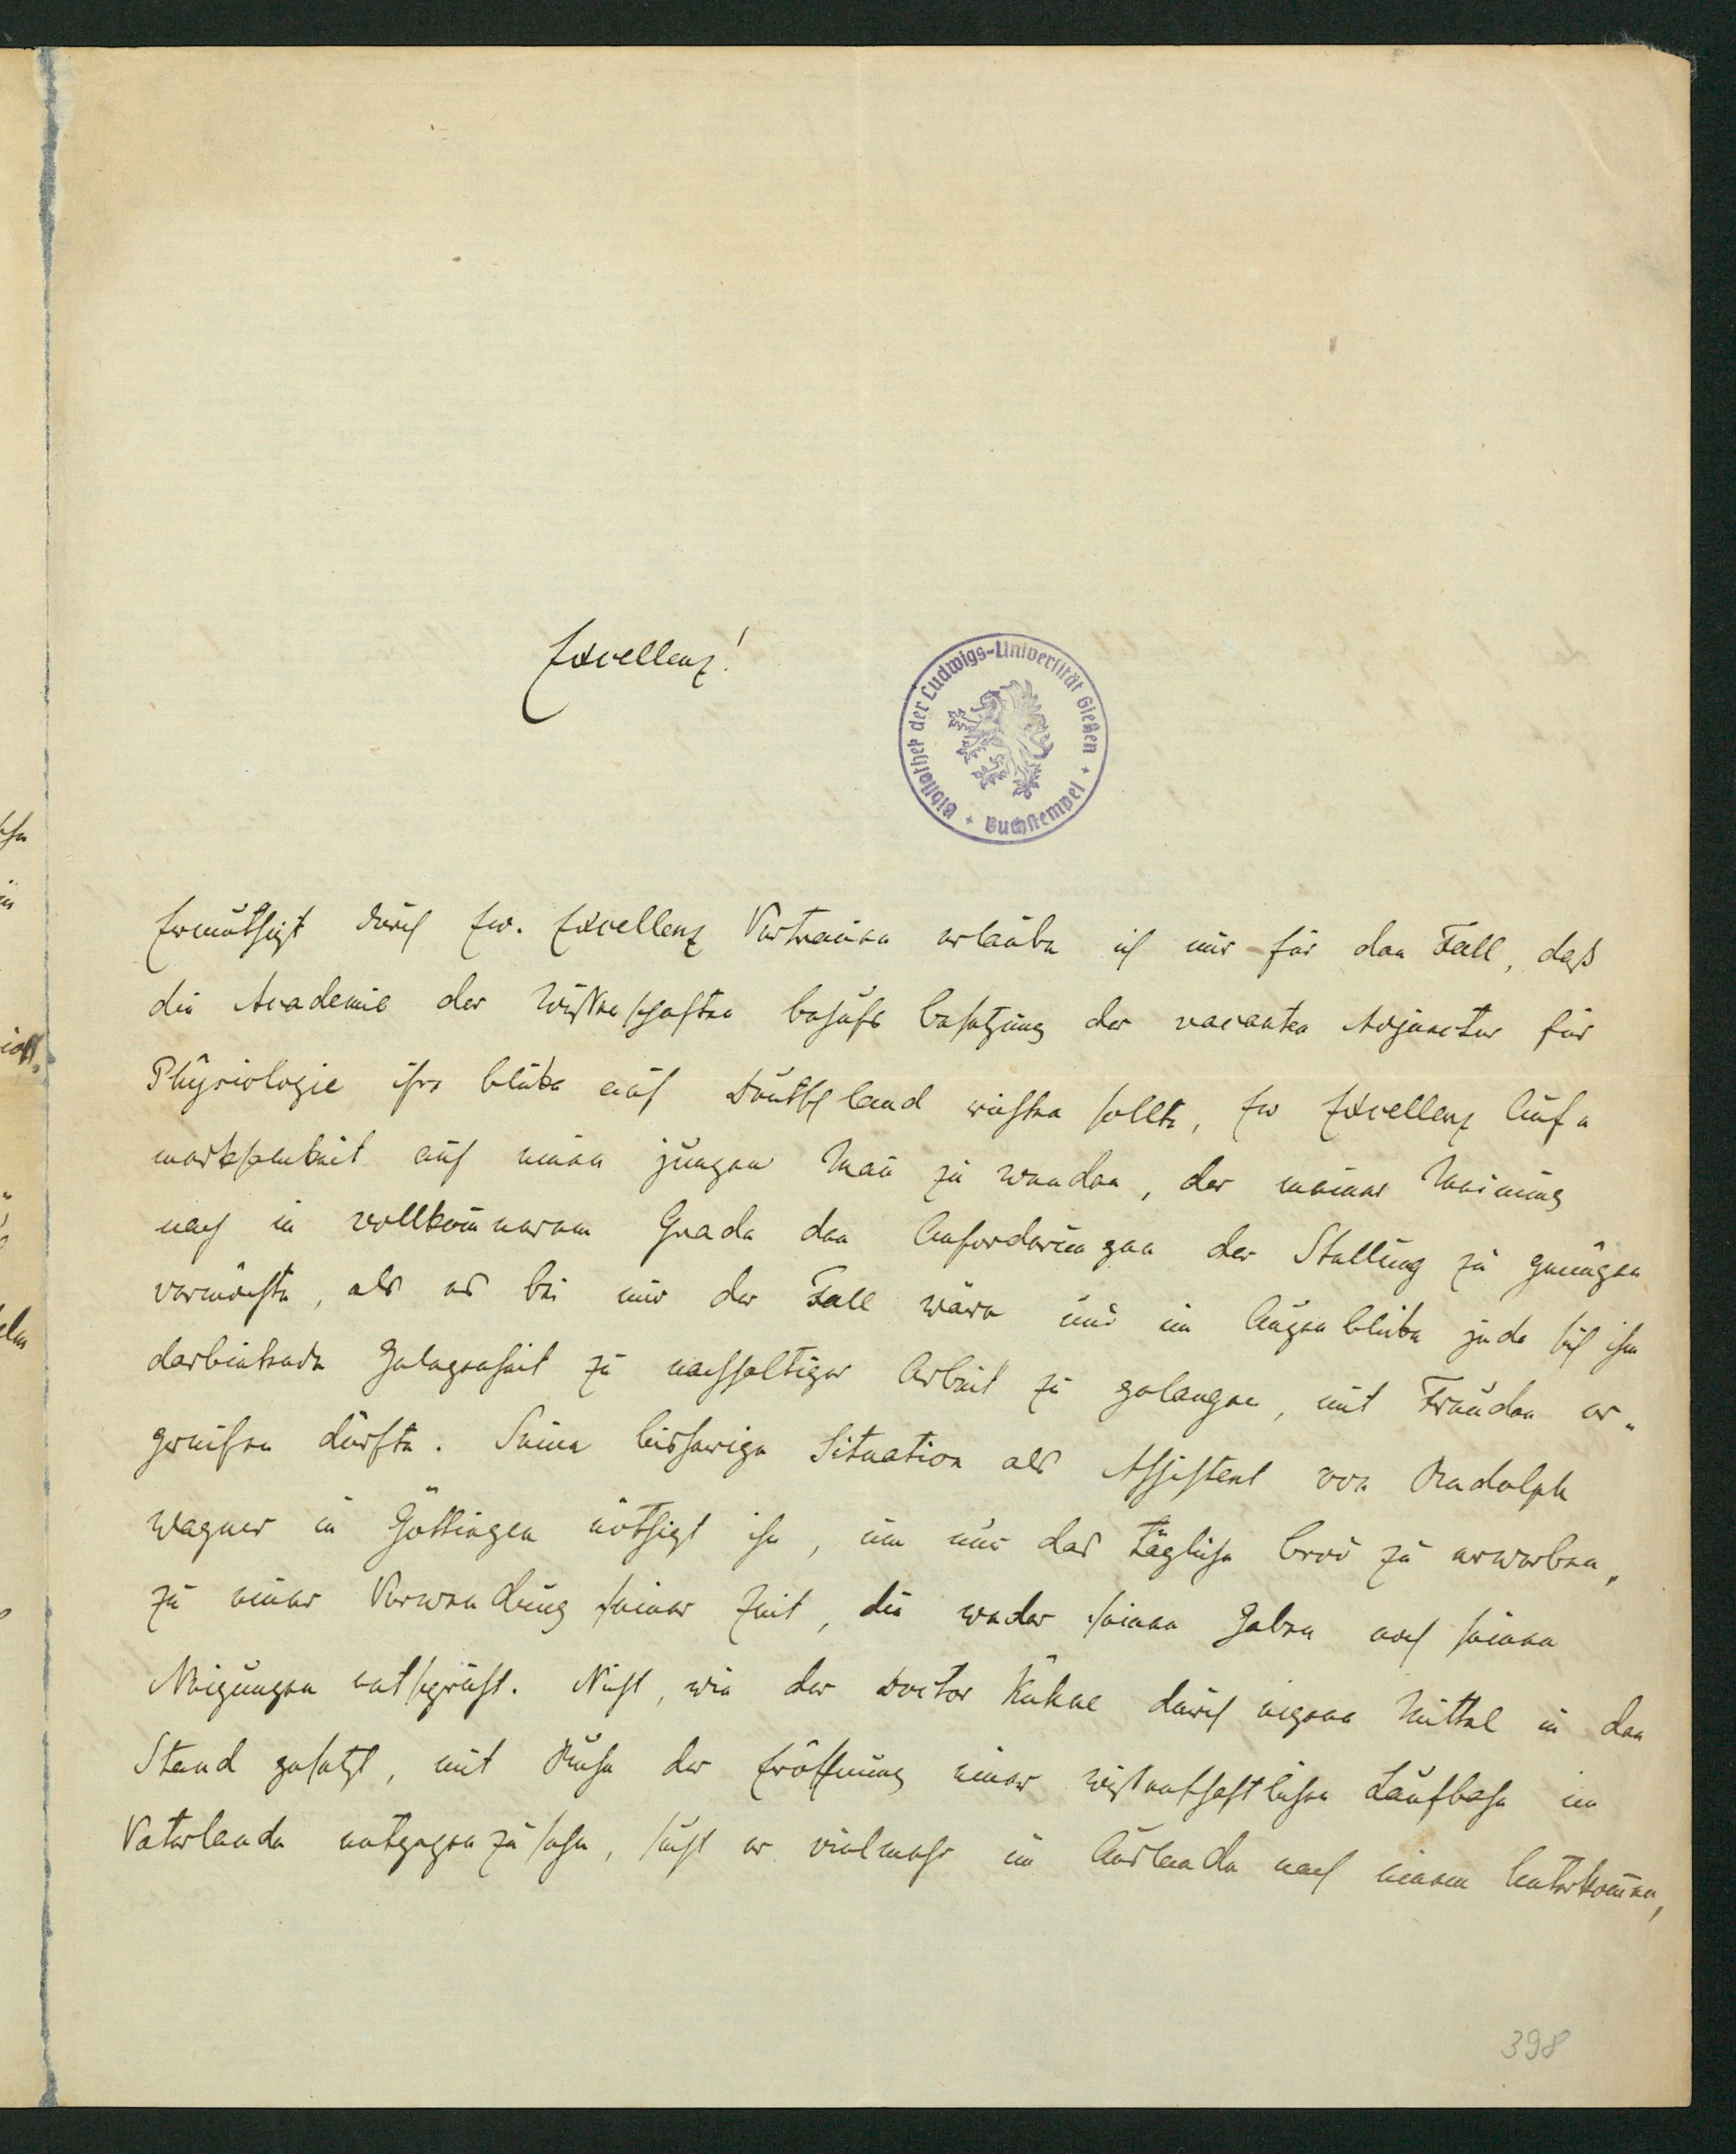 Excellenz!
Bibliothek der Ludwigs-Universität Gießen + Buchstempel +
Ermuthigt durch Ew. Excellenz Vertrauen erlaube ich mir für den Fall, daß
die Academie der Wissenschaften behufs Besetzung der vacanten Adjunctur für
Physiologie ihre Blicke auf Deutschland richten sollte, Ew Excellenz Auf-
merksamkeit auf einen jungen Mann zu wenden, der meiner Meinung
nach in vollkommnerem Grade den Anforderungen der Stellung zu genügen
vermöchte, als es bei mir der Fall wäre und im Augenblicke jede sich ihm
darbietende Gelegenheit zu nachhaltiger Arbeit zu gelangen, mit Freuden er-
greifen dürfte. Seine bisherige Situation als Assistent von Rudolph
Wagner in Göttingen nöthigt ihn, um nur das tägliche Brod zu erwerben,
zu einer Verwendung seiner Zeit, die weder seinen Gaben noch seinen
Neigungen entspricht. Nicht, wie der Doctor Kühne durch eigene Mittel in den
Stand gesetzt, mit Ruhe der Eröffnung einer wissenschaftlichen Laufbahn im
Vaterlande entgegen zu sehn, sucht er vielmehr im Auslande nach einem Unterkommen,
398